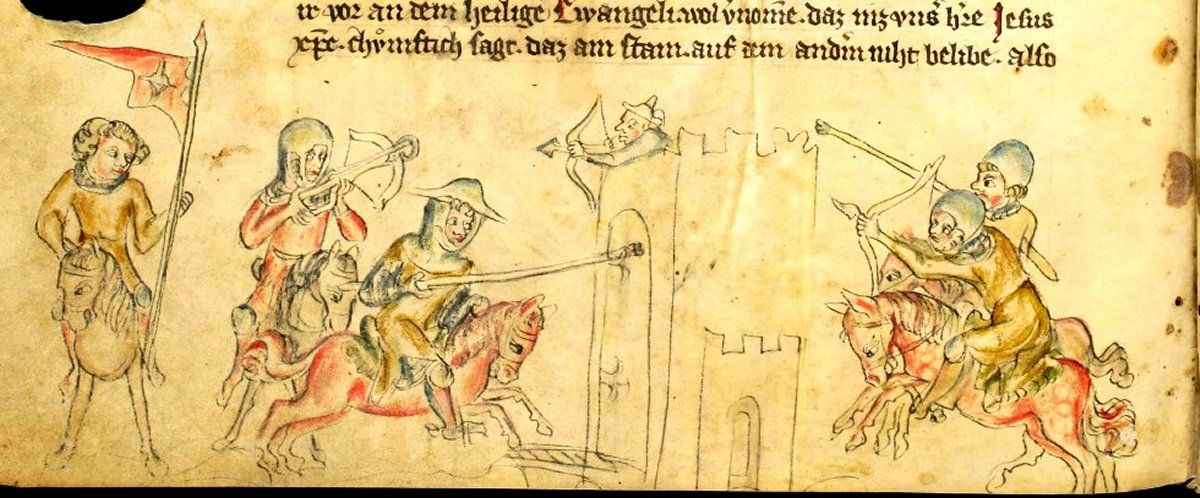 ir vor an dem heilige Ewangeli. wol vnome. daz niz vns h're Jesus
xpc. chvmftich sagt. daz ain stain. auf dem andin niht belibe. also